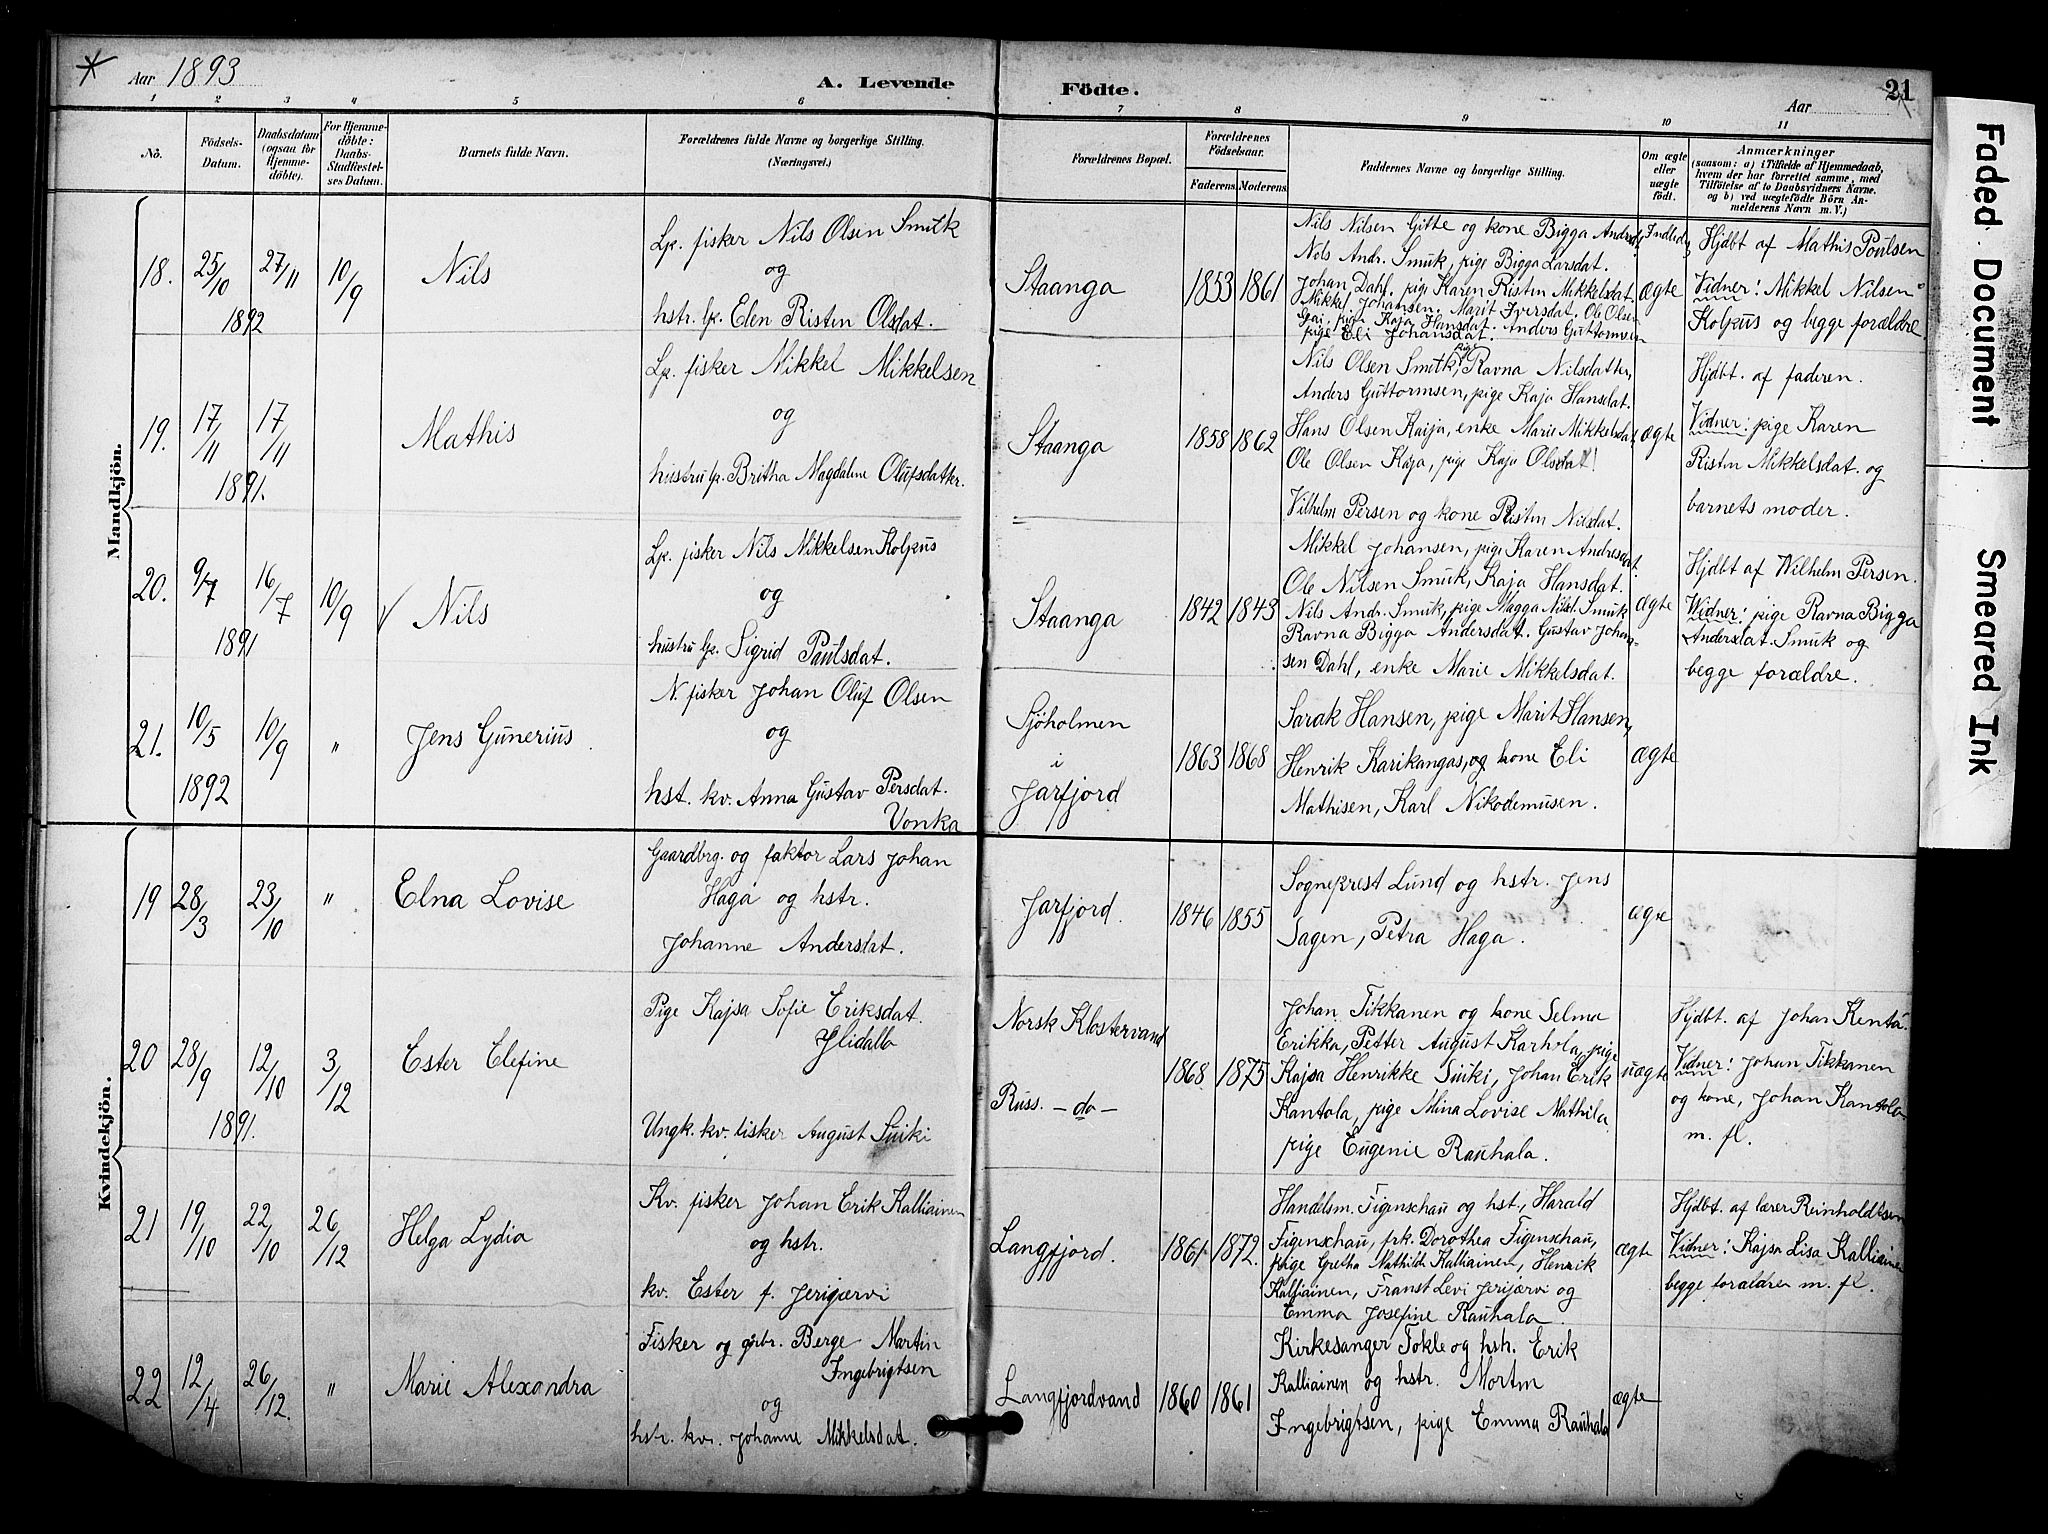 Aar 1893
A. Levende
Födte.
Aar
21
1 2 3 4 5 6 7 8 9 10 11
No.
Födsels-
Datum.
Daabsdatum
(ogsaa for
Hjemme-
döbte).
For Hjemme-
döbte:
Daabs-
Stadfæstel-
ses Datum.
Barnets fulde Navn.
Forældrenes fulde Navne og borgerlige Stilling.
(Næringsvei.)
Forældrenes Bopæl.
Forældrenes
Födselsaar.
Faderens. Moderens.
Faddernes Navne og borgerlige Stilling.
Om ægte
eller
uægte
födt.
Anmærkninger
(saasom: a) i Tilfælde af Hjemmedaab,
hvem der har forrettet samme, med
Tilföielse af to Daabsvidners Navne.
og b) ved uægtefödte Börn An-
melderens Navn m. V.)
Mandkjön.
18. 25/10 1892 27/11 10/9
Nils
Lp. fisker Nils Olsen Smuk
og
hstr. lp. Elen Ristin Olsdat.
Staanga
1853 1861
Nils Nilsen Gitte og kone Bigga
Nils Andr. Smuk, pige Bigga Larsdat.
Johan Dahl, pige Karen Ristin Mikkelsdat.
Mikkel Johansen. Marit Iversdat. Ole Olsen
pige Kaja Hansdat. Anders Guttormsen
pige Eli Johansdat.
ægte
Hjdbt af Mathis Poulsen
Vidner: Mikkel Nilsen
Kolpus og begge forældre
19. 17/11 1891. 17/11
Mathis
Lp. fisker Mikkel Mikkelsen
og
hustru lp. Britha Magdalene Olufsdatter.
Staanga
1858 1862
Nils Olsen Smuk, pige Ravna Nilsdatter,
Anders Guttormsen, pige Kaja Hansdat.
Hans Olsen Kaija, enke Marie Mikkelsdat.
Ole Olsen Kaja, pige Kaja Olsdat!
Vilhelm Persen og kone Ristin Nilsdat.
ægte
Hjdbt. af faderen.
Vidner: pige Karen
Ristin Mikkelsdat. og
barnets moder.
20. 9/7 1891 16/7 10/9
√ Nils
Lp. fisker Nils Mikkelsen Kolpus
og
hustru lp. Sigrid Paulsdat.
Staanga
1842 1843
Mikkel Johansen, pige Karen Andresdat.
Ole Nilsen Smuk, Kaja Hansdat.
Nils Andr. Smuk, pige Magga Nilsd. Smuk
Ravna Bigga Andersdat. Gustav Johan-
sen Dahl, enke Marie Mikkelsdat.
ægte
Hjdbt af Wilhelm Persen.
Widner: pige Ravna Bigga
Andersdat. Smuk og
begge forældre.
21. 10/5 1892 10/9 "
Jens Gunerius
N. fisker Johan Oluf Olsen
og
hst. kv. Anna Gustav Persdat.
Vonka
Sjøholmen
i
Jarfjord
1863 1868
Sarak Hansen, pige Marit Hansen,
Henrik Karikangas, og kone Eli
Mathisen, Karl Nikodemusen.
ægte
Kvindekjön.
19 28/3 23/10 "
Elna Lovise
Gaardbrg. og faktor Lars Johan
Haga og hstr.
Johanne Andersdat.
Jarfjord.
1846 1855
Sogneprest Lund og hstr. Jens
Sagen, Petra Haga.
ægte
20 28/9 1891. 12/10 3/12
Ester Elefine
Pige Kajsa Sofie Eriksdat.
Ylidallo
Ungk. kv. fisker August Suiki
Norsk Klostervand
Russ. - do -
1868 1875
Johan Tikkanen og kone Selma
Erikka, Petter August Karhola, pige
Kajsa Henrikke Suiki, Johan Erik
Kantola, pige Mina Lovise Mathila,
pige Eugenie Rauhala.
uægte
Hjdbt. af Johan
Vidner: Johan Tikkanen
og kone, Johan Kantola
m. fl.
21 19/10 22/10 26/12
Helga Lydia
Kv. fisker Johan Erik Kalliainen
og hstr.
kv. Ester f. Jerijærvi
Langfjord.
1861 1872.
Handelsm. Figenschau og hst., Harald
Figenschau, frk. Dorothea Figenschau,
pige Gretha Mathilde Kalliainen, Henrik
Kalliainen, Franst Levi Jerijærvi og
Emma Josefine Rauhala.
ægte
Hjdbt. af lærer Reinholdtsen
Vidner: Kajsa Lisa Kalliainen
begge forældre m. fl.
22 12/4 26/12. "
Marie Alexandra
Fisker og grbr. Berge Martin
Ingebrigtsen
og
hstr. kv. Johanne Mikkelsdat.
Langfjordvand
1860 1861
Kirkesanger Fokle og hstr. Erik
Kalliainen og hstr. Mortin
Ingebrigtsen, pige Emma Rauhala
ægte
Faded Document
Smeared Ink